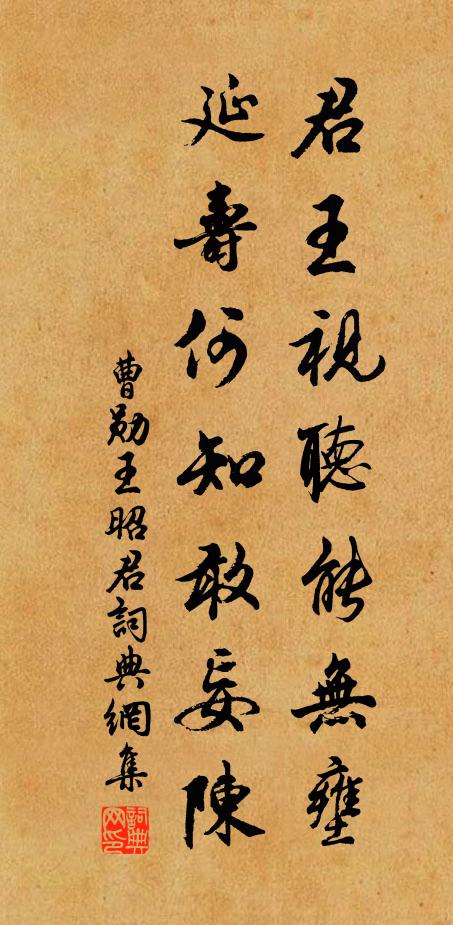 君王視聽能無壅
延壽何知敢妄陳
曹勛王昭君詞典網集
詞典网印